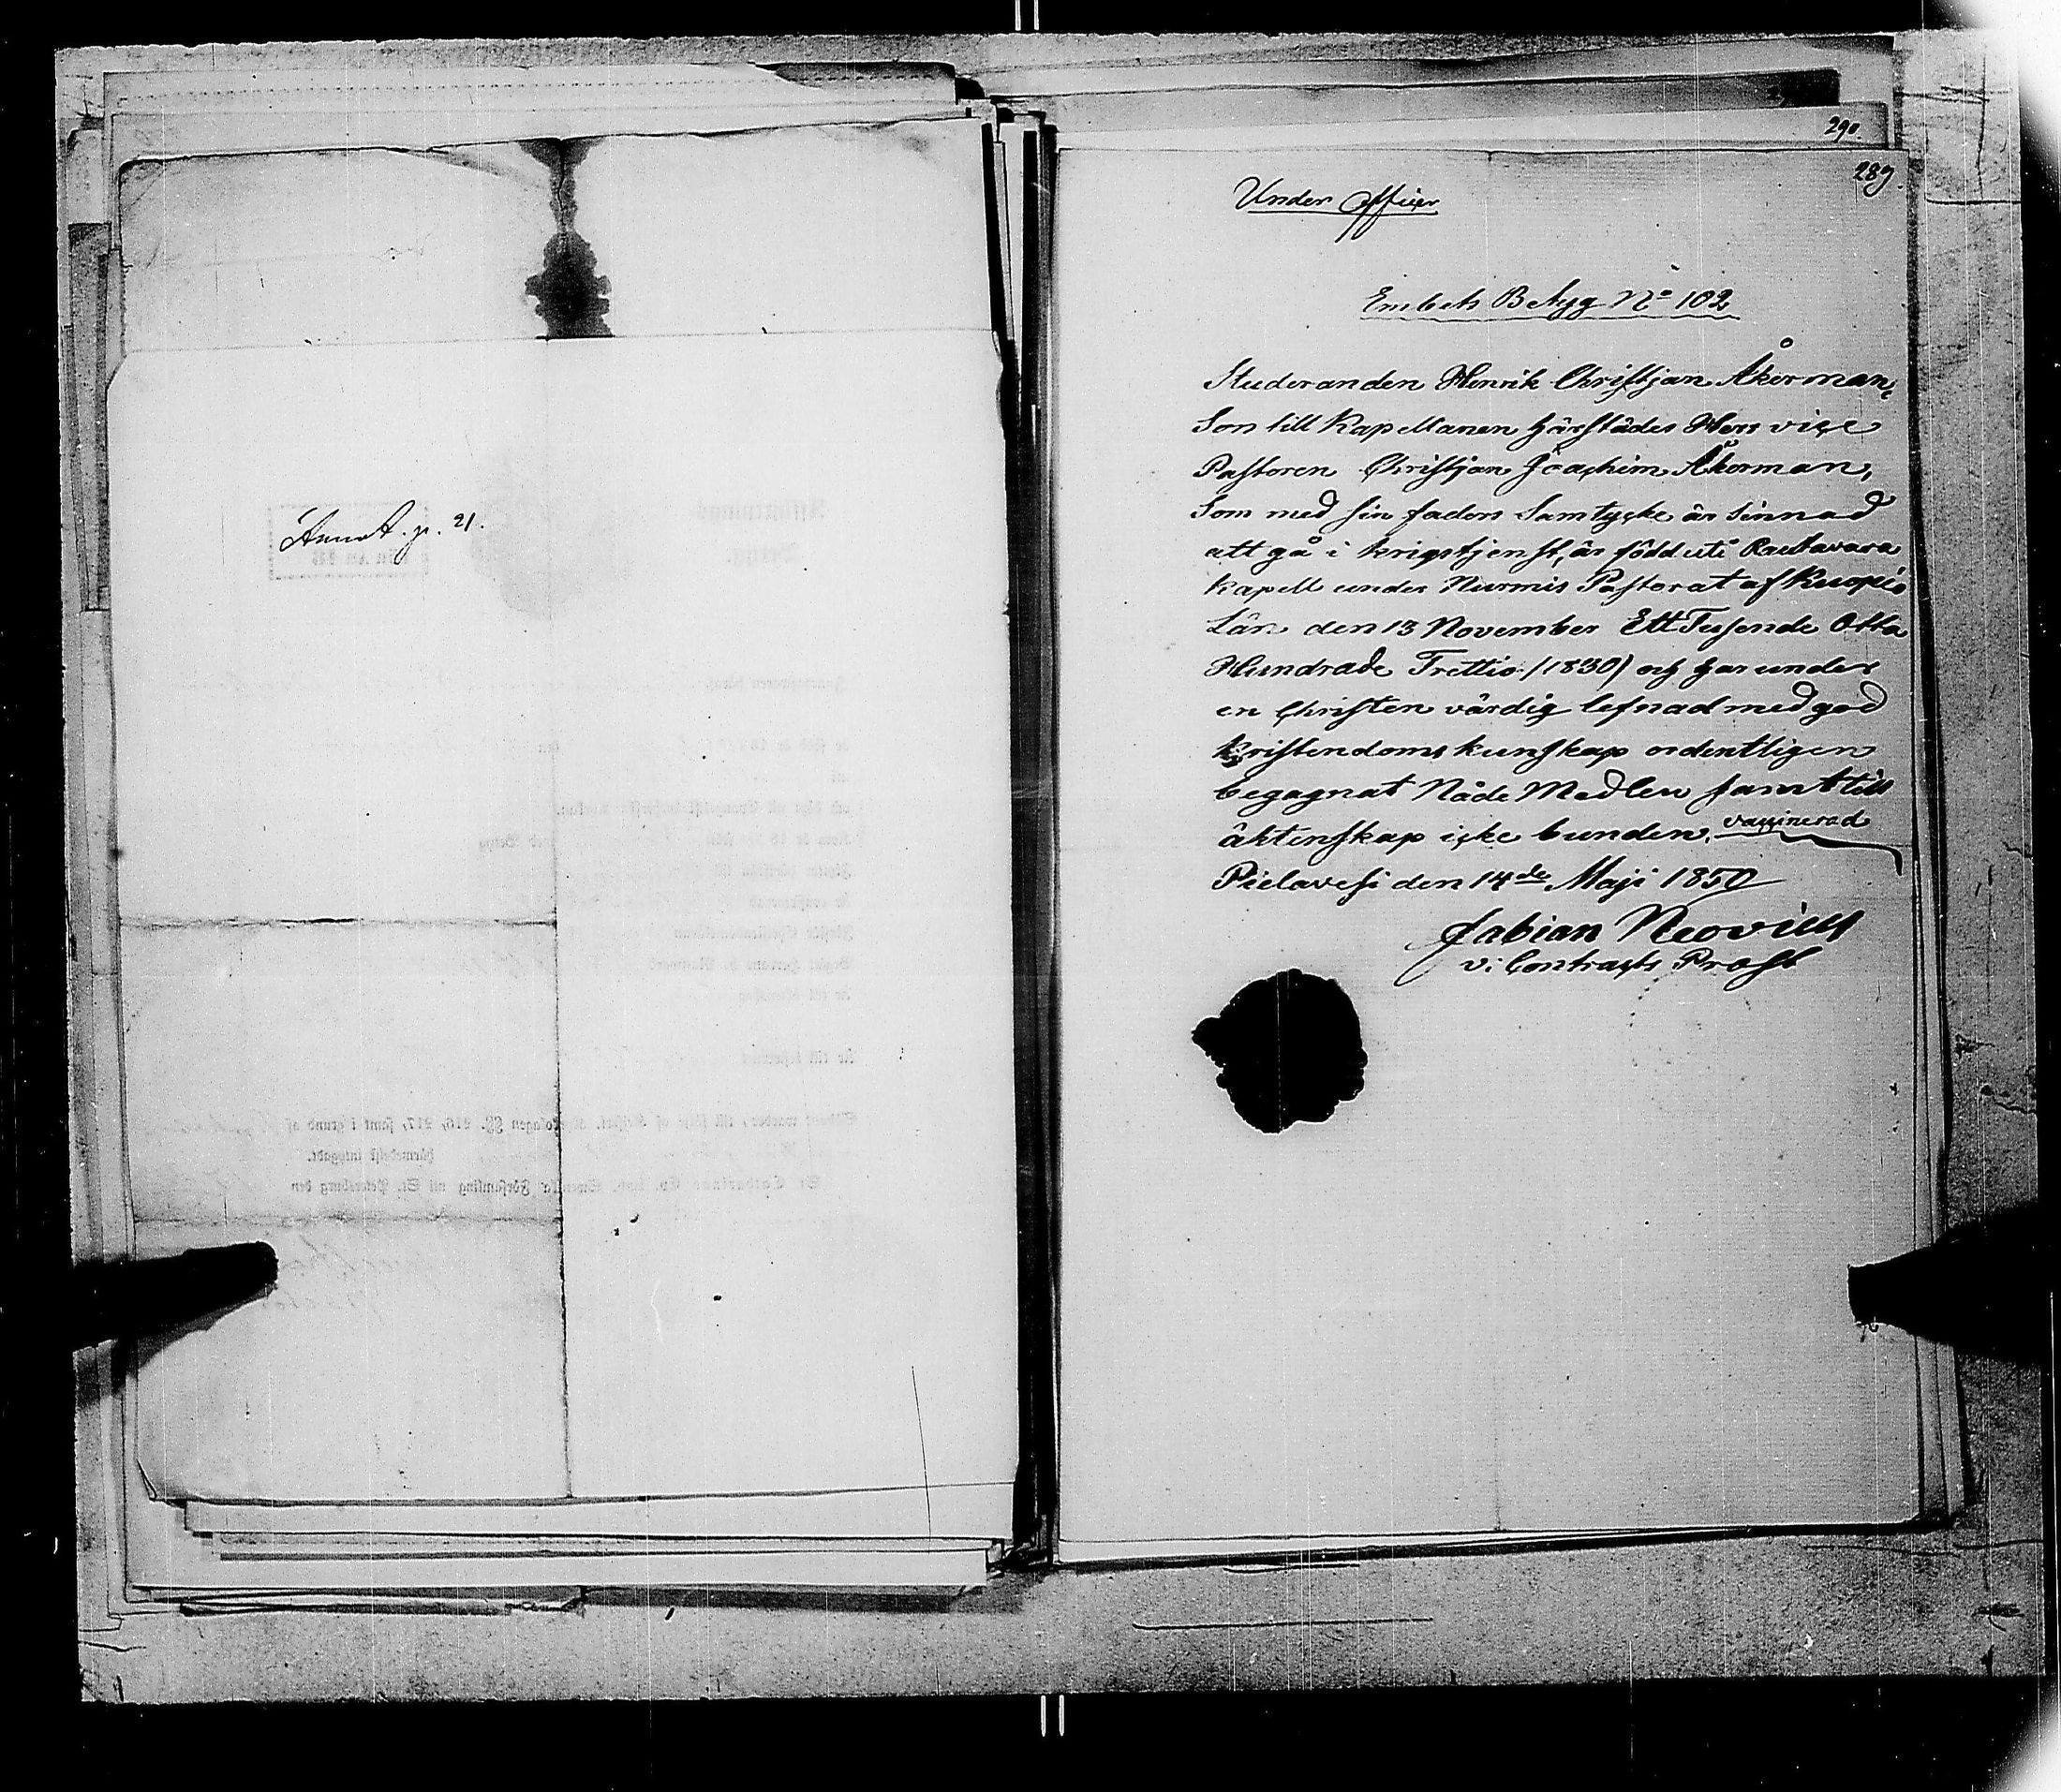 Annot. p. 21.
290.
289.
Under officier
Embets Betyg No 102
Studeranden Henrik Christjan Åkerman,
Son till Kapellanen härstädes Herr vice
Pastoren Christjan Joachim Åkerman,
Som med sin faders Samtycke är sinnad
att gå i krigstjenst, är född uti Rautavara
Kapell under Nurmis Pastorat af Kuopio
Län den 13 November Ett Tusende Otta
Hundrade Trettio (1830) och har under
en Christen värdig lefnad med god
Kristendoms kunskap ordentligen
begagnat Nåde Medlen samt till
äktenskap icke bunden. vaccinerad
Pielavesi den 14de Maji 1850
Fabian Neovius
v: Contracts Prost